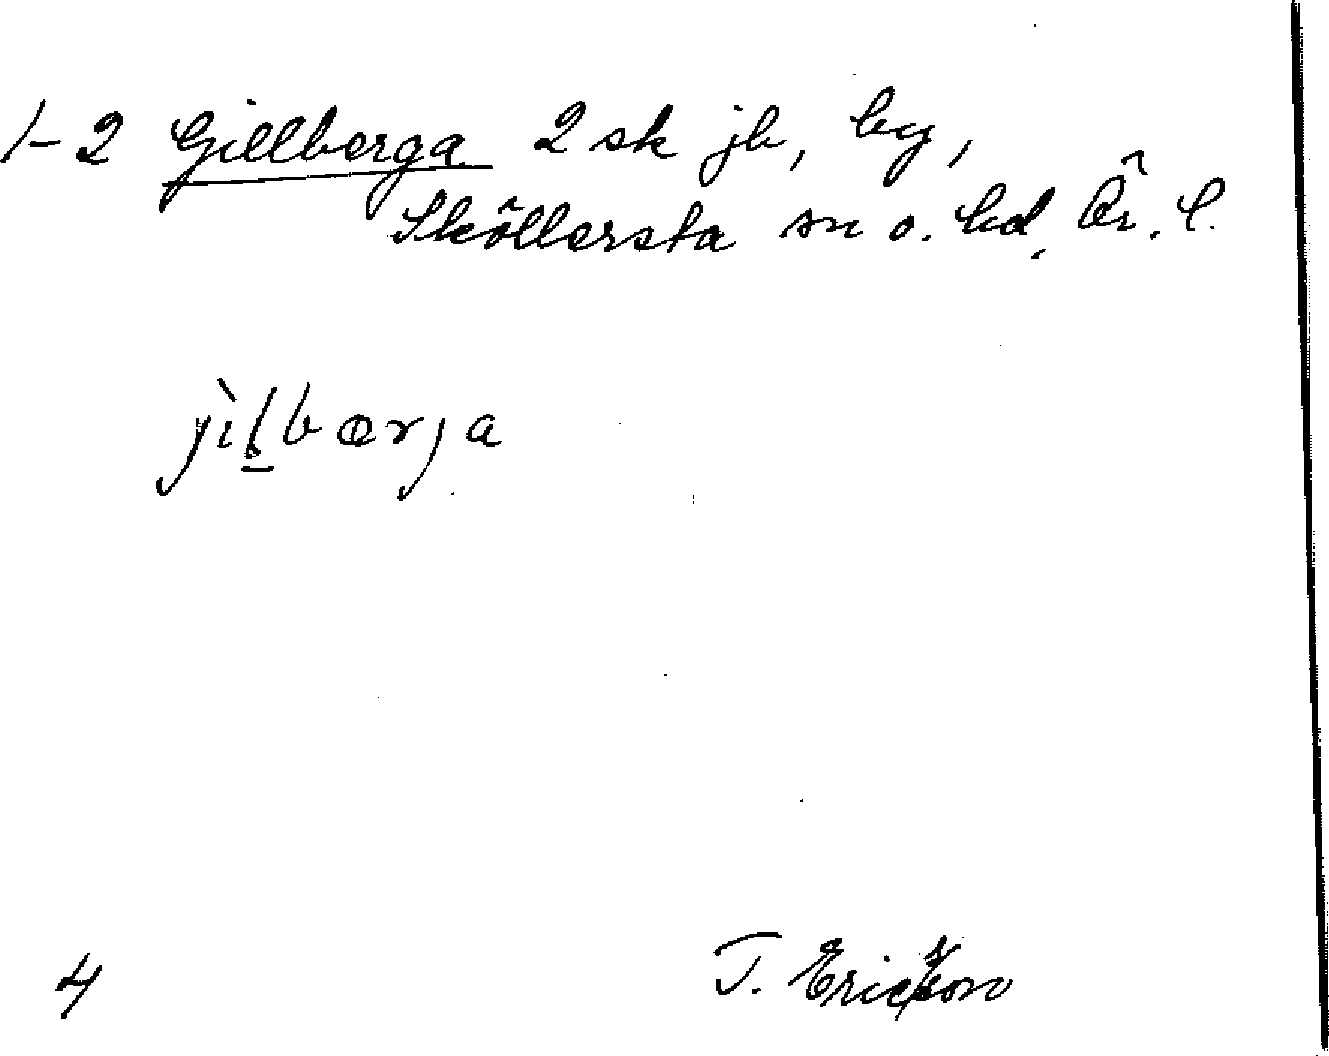 1-2 Gillberga 2 sk jb, by,
Sköllersta sn o. hd, Ör. l.
jìlbærja
4
T. Ericsson